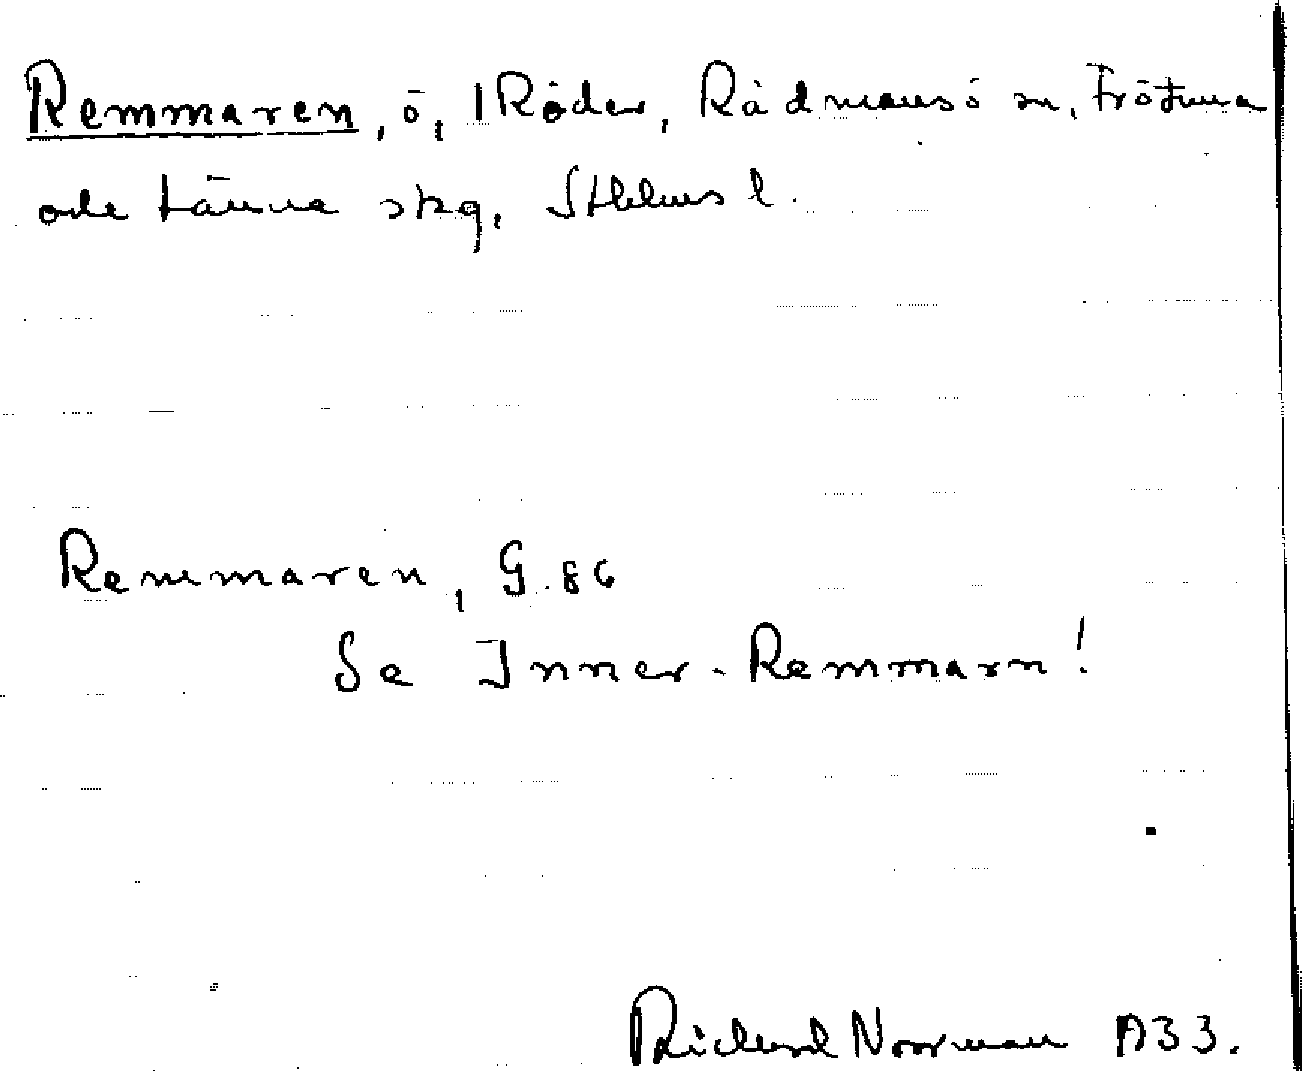 Remmaren, ö, 1 Röder, Rådmansö sn, Frötuna
och Länna skg, Sthlms l.
Remmaren, G. 86
Se Inner-Remmarn!
Richard Norrman 1933.